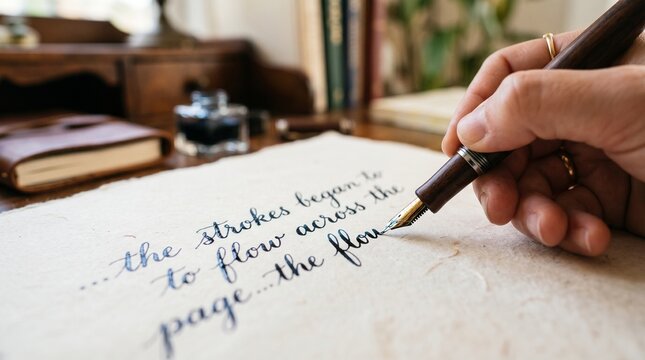 ...the strokes began to
to flow across the
page...the flow